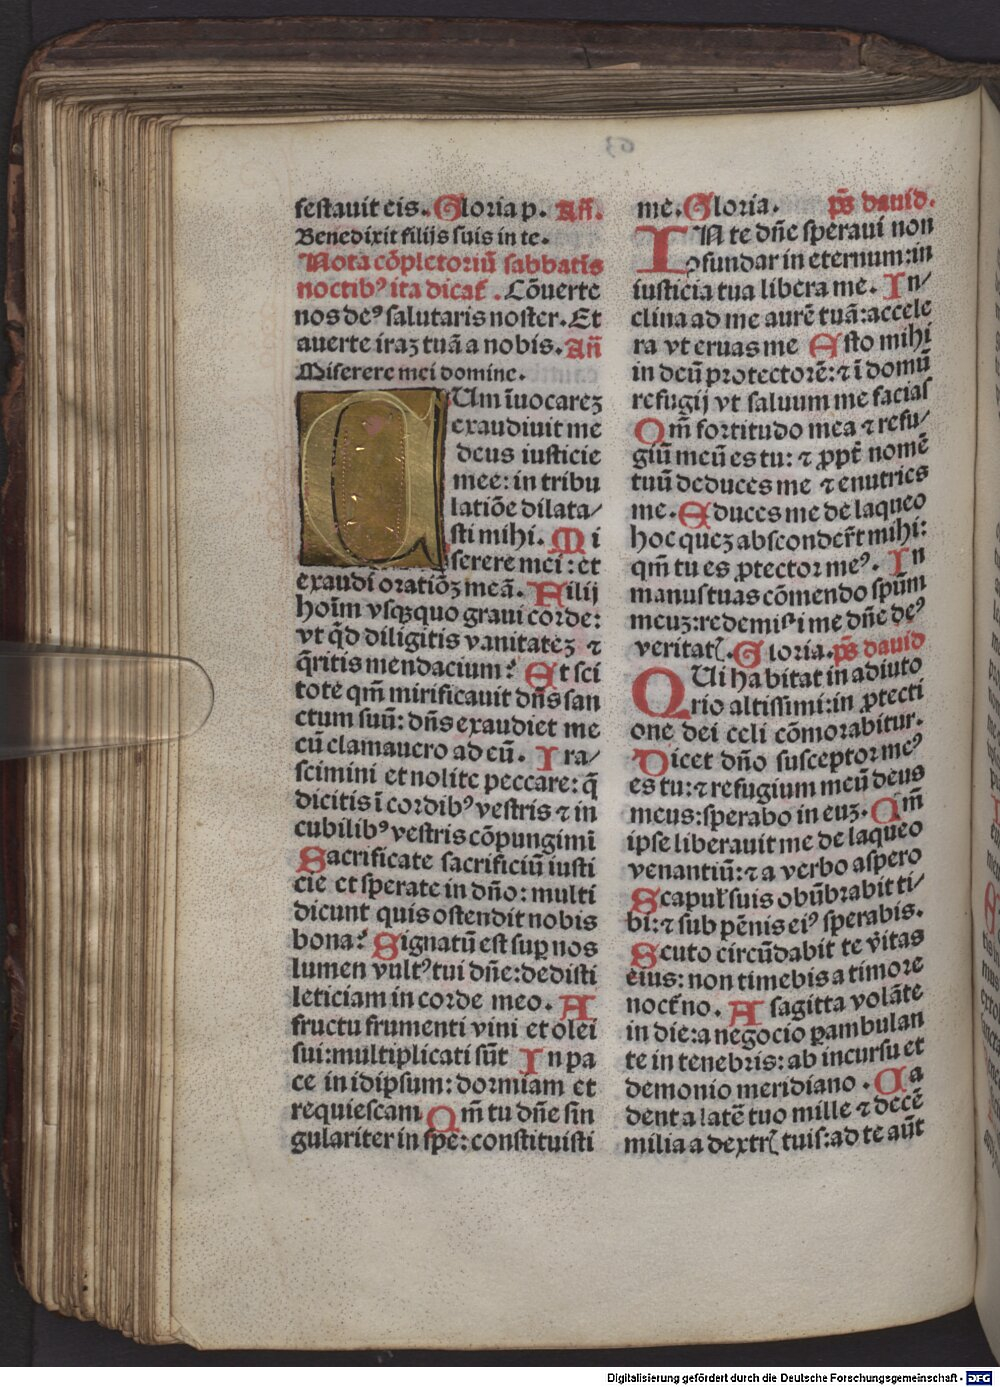 63
festauit eis. Gloria p. Añ.
Benedixit filijs suis in te.
Nota cōpletoriū sabbatis
noctibꝰ ita dicat̄. Cōuerte
nos deꝰ salutaris noster. Et
auerte iraꝫ tuā a nobis. Añ
Miserere mei domine.
CUm īuocareꝫ
exaudiuit me
deus iusticie
mee: in tribu
latiōe dilata/
sti mihi. Mi
serere mei: et
exaudi oratiōꝫ meā. Filij
hoīm vsqꝫquo graui corde:
vt qͥd diligitis vanitateꝫ ⁊
q̄ritis mendacium? Et sci
tote qm̄ mirificauit dn̄s san
ctum suū: dn̄s exaudiet me
cū clamauero ad eū. Ira/
scimini et nolite peccare: q̄
dicitis ī cordibꝰ vestris ⁊ in
cubilibꝰ vestris cōpungimī
Sacrificate sacrificiū iusti
cie et sperate in dn̄o: multi
dicunt quis ostendit nobis
bona? Signatū est suꝑ nos
lumen vultꝰ tui dn̄e: dedisti
leticiam in corde meo. A
fructu frumenti vini et olei
sui: multiplicati sūt In pa
ce in idipsum: dormiam et
requiescam Qm̄ tu dn̄e sin
gulariter in spe: constituisti
me. Gloria. p̄s dauid.
IN te dn̄e speraui non
ↄfundar in eternum: in
iusticia tua libera me. In/
clina ad me aurē tuā: accele
ra vt eruas me Esto mihi
in deū protectorē: ⁊ ī domū
refugij vt saluum me facias
Qm̄ fortitudo mea ⁊ refu/
giū meū es tu: ⁊ ꝓpt̄ nomē
tuū deduces me ⁊ enutries
me. Educes me de laqueo
hoc queꝫ absconder̄t mihi:
qm̄ tu es ꝓtector meꝰ. In
manus tuas cōmendo spūm
meuꝫ: redemisti me dn̄e deꝰ
veritatꝭ. Gloria. p̄s dauid
QUi habitat in adiuto
rio altissimi: in ꝓtecti
one dei celi cōmorabitur.
Dicet dn̄o susceptor meꝰ
es tu: ⁊ refugium meū deus
meus: sperabo in euꝫ. Qm̄
ipse liberauit me de laqueo
venantiū: ⁊ a verbo aspero
Scapul̄ suis obūbrabit ti/
bi: ⁊ sub pēnis eiꝰ sperabis.
Scuto circūdabit te v̄itas
eius: non timebis a timore
noct̄no. A sagitta volāte
in die: a negocio ꝑambulan
te in tenebris: ab incursu et
demonio meridiano. Ca
dent a latē tuo mille ⁊ decē
milia a dextrꝭ tuis: ad te aūt
Digitalisierung gefördert durch die Deutsche Forschungsgemeinschaft - DFG